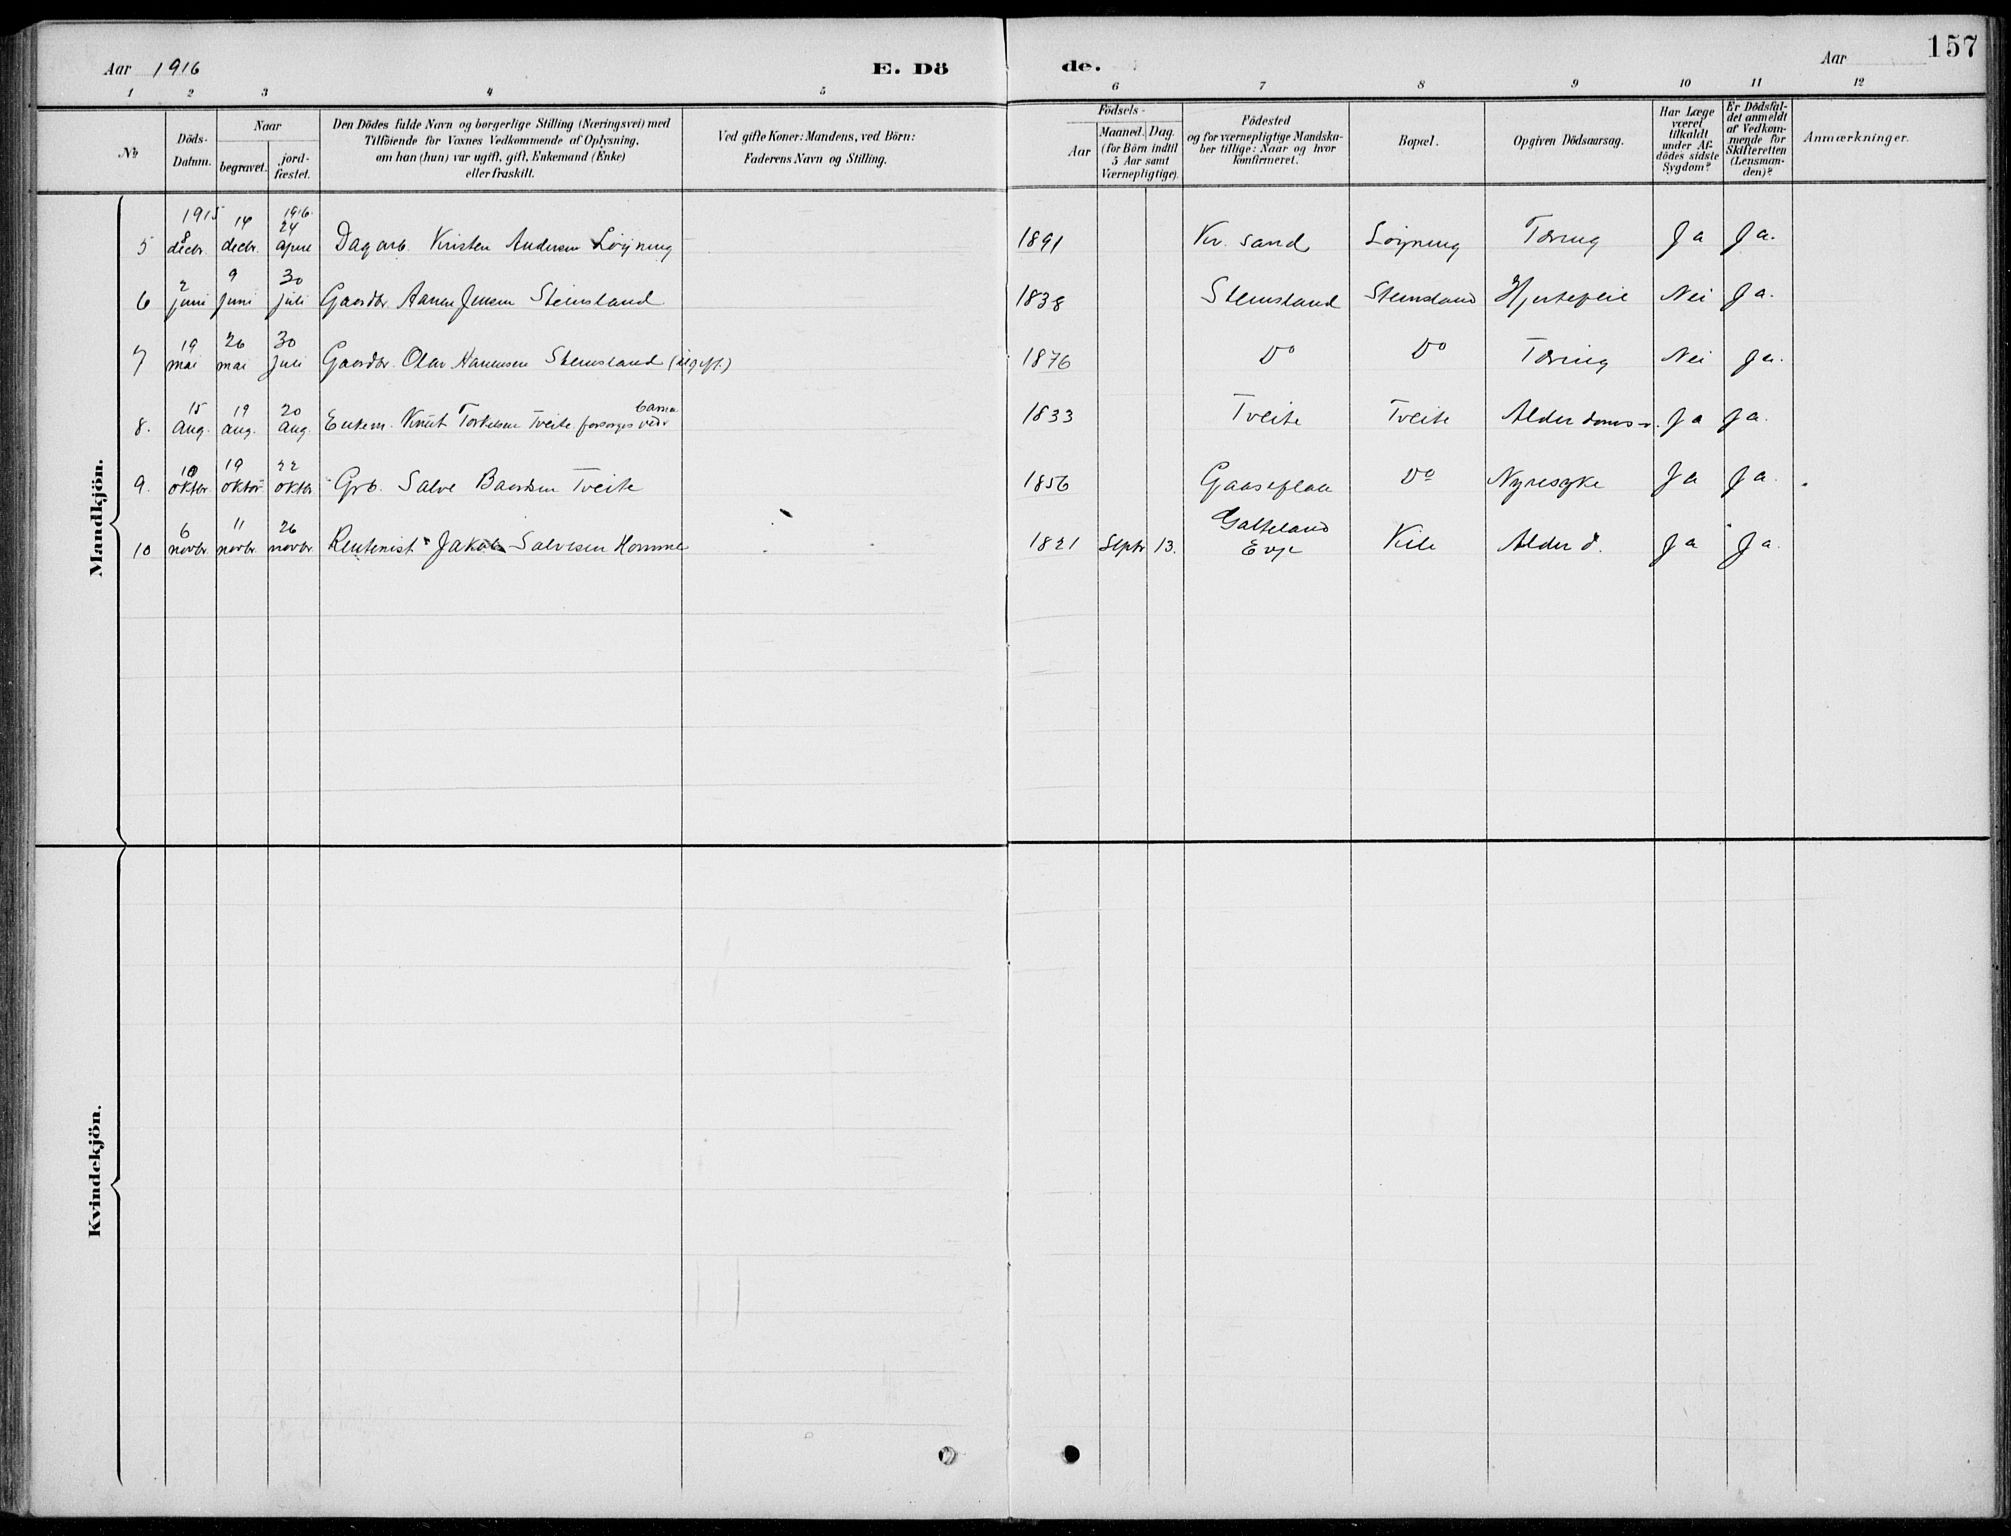 157
Aar 1916
E. Dö
de.
Aar
1 2 3 4 5 6 7 8 9 10 11 12
No.
Döds-
Datum.
Naar
begravet.
jord-
fæstet.
Den Dödes fulde Navn og borgerlige Stilling (Næringsvei) med
Tilföiende for Voxnes Vedkommende af Oplysning,
om han (hun) var ugift, gift, Enkemand (Enke)
eller fraskilt.
Ved gifte Koner: Mandens, ved Börn:
Faderens Navn og Stilling.
Födsels-
Aar
Maaned. Dag.
(for Börn indtil
5 Aar samt
Værnepligtige).
Födested
og for værnepligtige Mandska-
ber tillige: Naar og hvor
konfirmeret.
Bopæl.
Opgiven Dödsaarsag.
Har Læge
været
tilkaldt
under Af-
dödes sidste
Sygdom?
Er Dödsfal-
det anmeldt
af Vedkom-
mende for
Skifteretten
(Lensman-
den)?
Anmærkninger.
Mandkjön.
1915 14 1916 24
5 8 decbr. decbr. april Dagarb. Kristen Andersen Löyning 1891 Kr. sand Löyning Tæring Ja Ja.
2 9 30
6 juni juni juli Gaardbr. Aanen Jensen Stemsland 1838 Stemsland Stemsland Hjertefeil Nei Ja.
19 26 30
7 mai mai juli Gaardbr. Olav Aanensen Stemsland (ugift.) 1876 Do Do Tæring Nei Ja.
15 19 20
8. aug. aug. aug Enkem. Knut Torkelsen Tveite forsørges ved barna 1833 Tveite Tveite Alderdoms-. Ja Ja.
10 19 22
9. oktbr oktbr oktbr Grb. Salve Baardsen Tveite 1856 Gaaseflaa Do Nyresyke Ja Ja.
6 11 26
10 novbr. novbr. novbr. Rentenist Jakob Salvesen Homme 1821 Septr 13. Galteland Evje Kile Alderd. Ja Ja.
Kvindekjön.